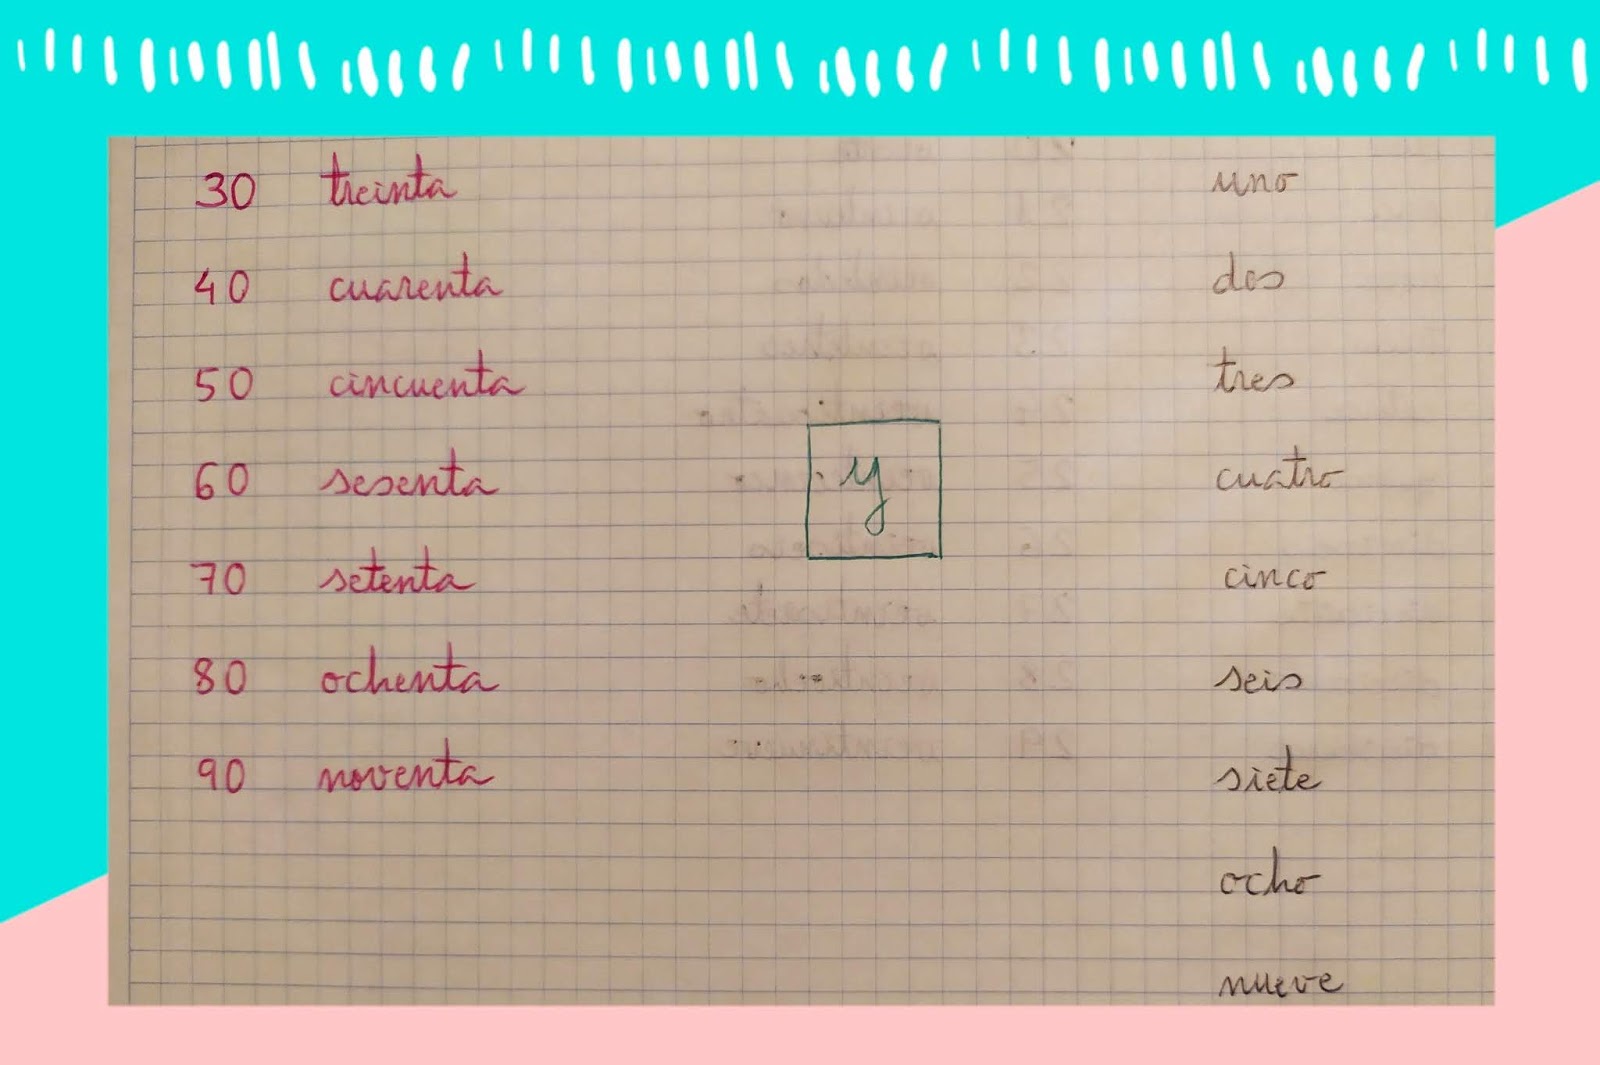 30 treinta uno
40 cuarenta dos
50 cincuenta tres
60 sesenta y cuatro
70 setenta cinco
80 ochenta seis
90 noventa siete
ocho
nueve